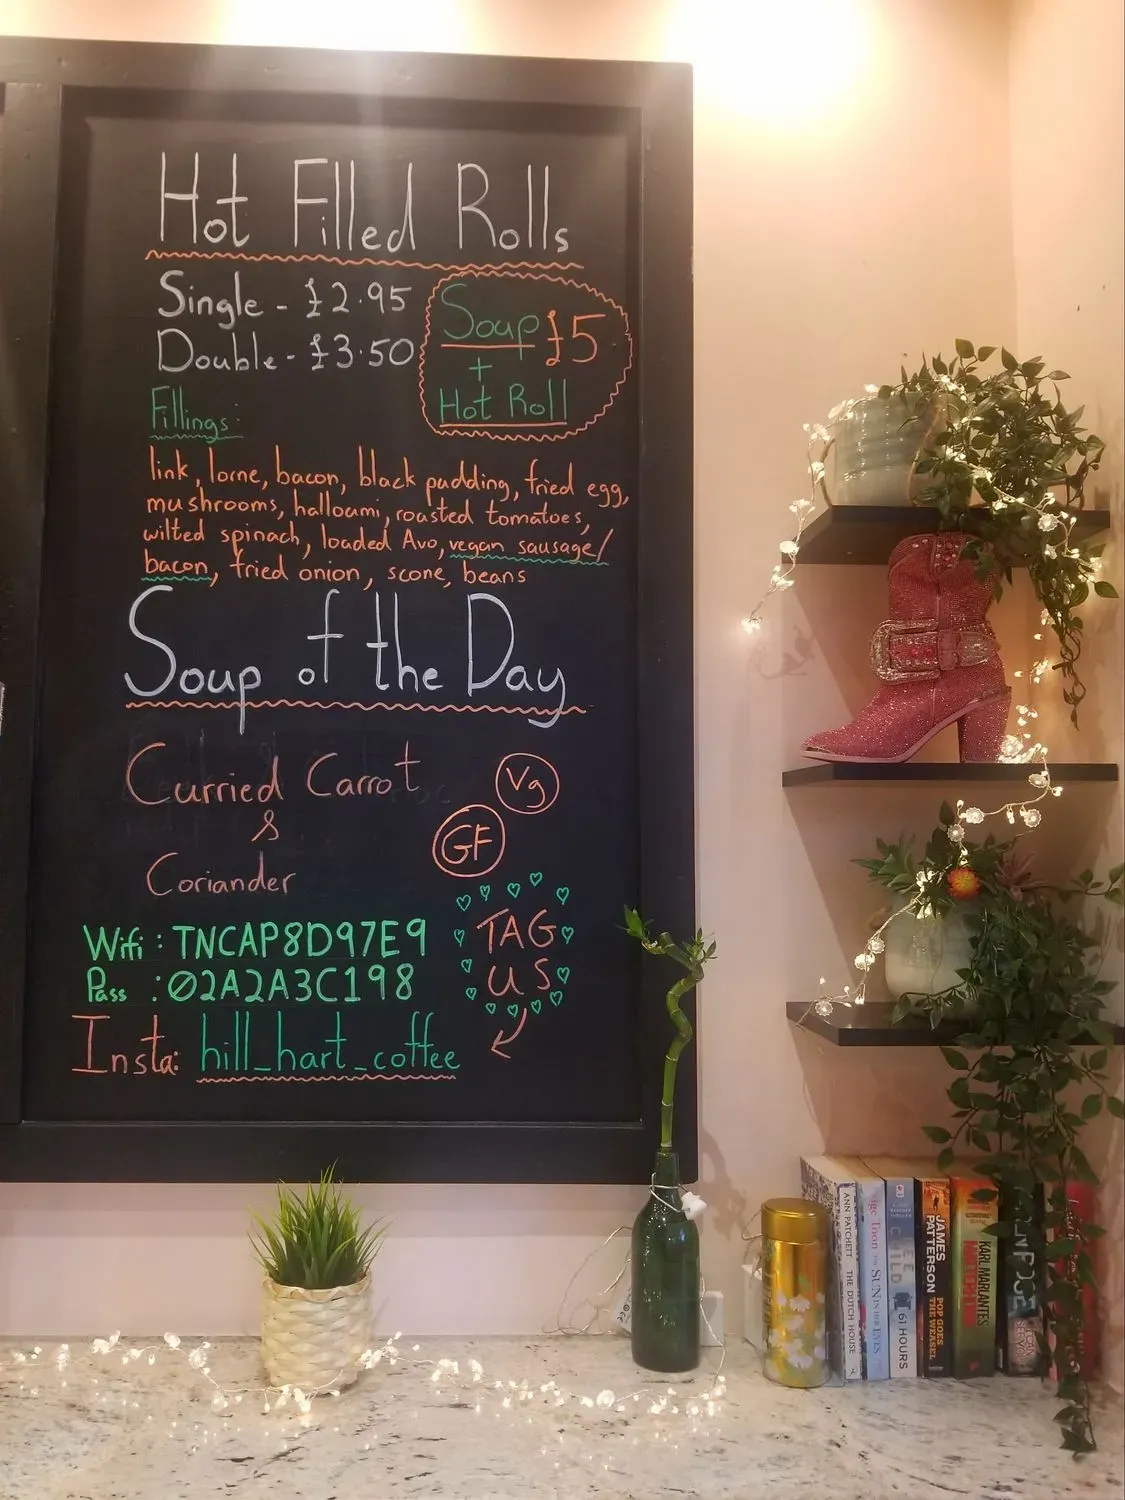 Hot Filled Rolls
Single - £2.95
Double - £3.50
Soup £5
+
Hot Roll
Fillings:
link, lorne, bacon, black pudding, fried egg,
mushrooms, halloumi, roasted tomatoes,
wilted spinach, loaded Avo, vegan sausage/
bacon, fried onion, scone, beans
Soup of the Day
Curried Carrot
&
Coriander
Vg
GF
Wifi : TNCAP8D97E9
Pass : 02A2A3C198
TAG
US
Insta: hill_hart_coffee
ANN PATCHETT THE DUTCH HOUSE
Toon THE SUN IN HER EYES
LEE CHILD 61 HOURS
JAMES PATTERSON POP GOES THE WEASEL
KARL MARLANTES